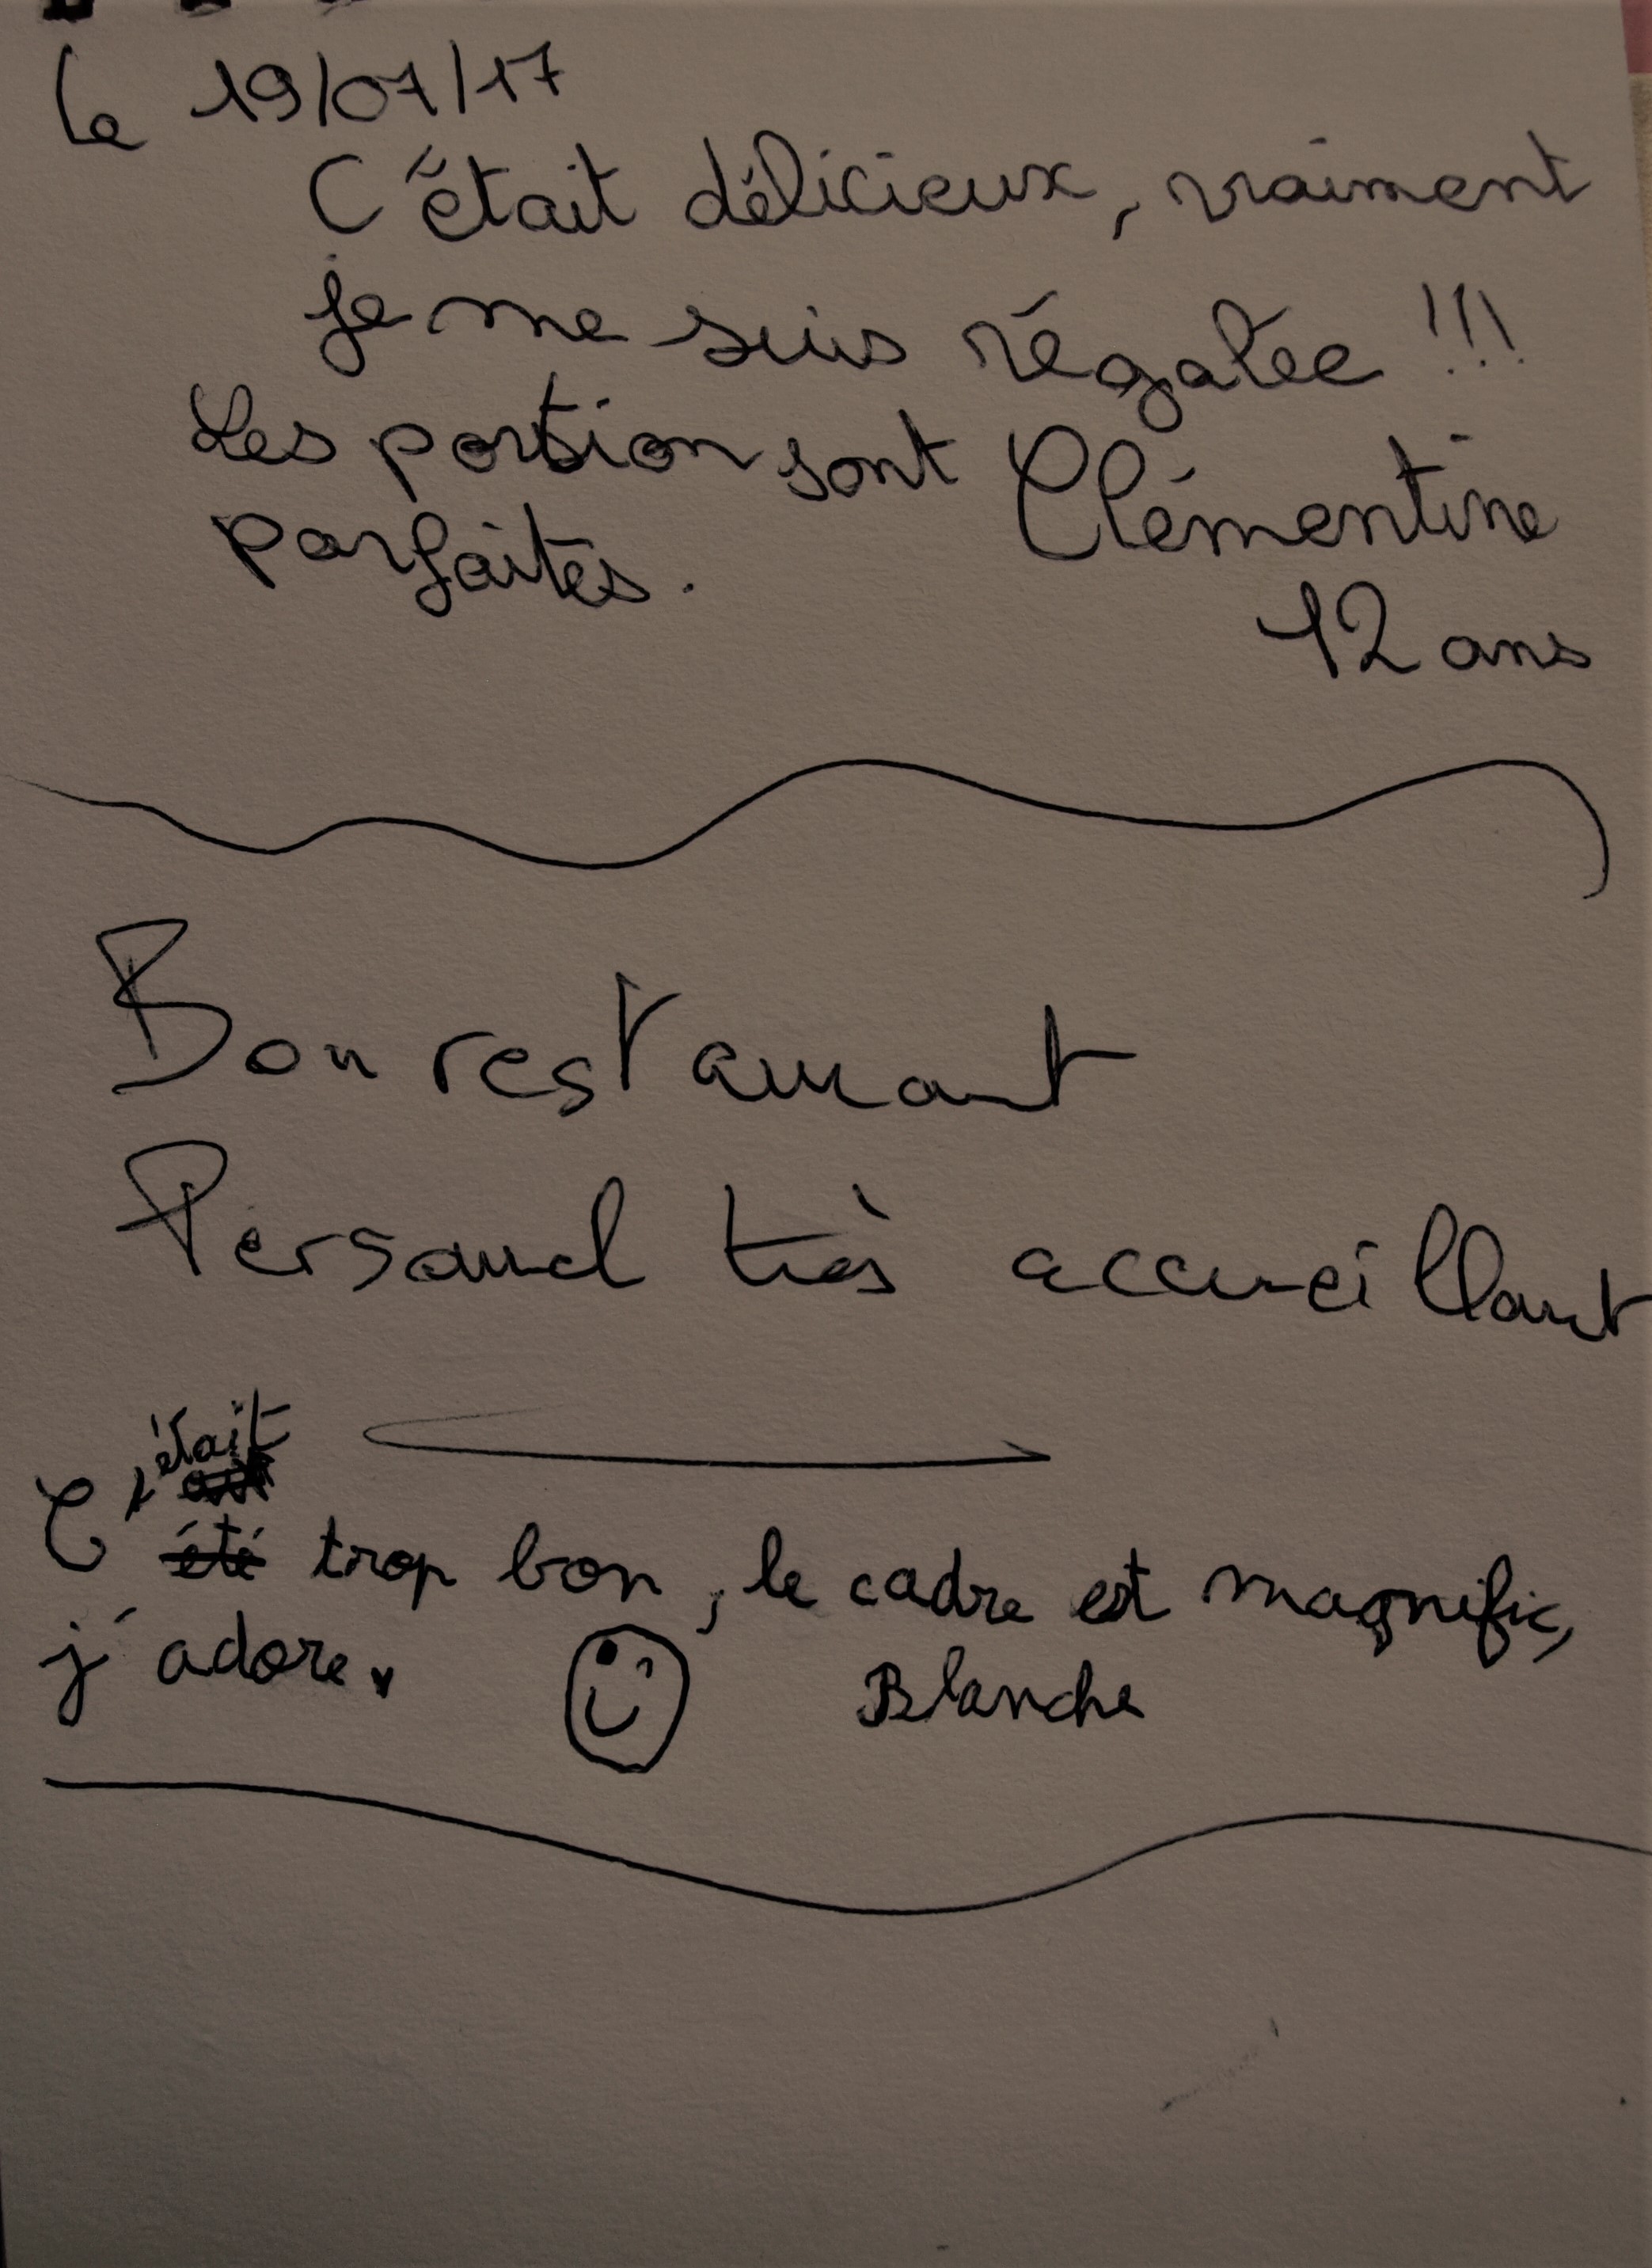 Le 19/07/17
C'était délicieux, vraiment
je me suis régalée !!!
Les portion sont
parfaites.
Clémentine
12 ans
Bon restaurant
Personnel très accueillant
était
C' été trop bon, le cadre est magnific,
j'adore.
Blanche